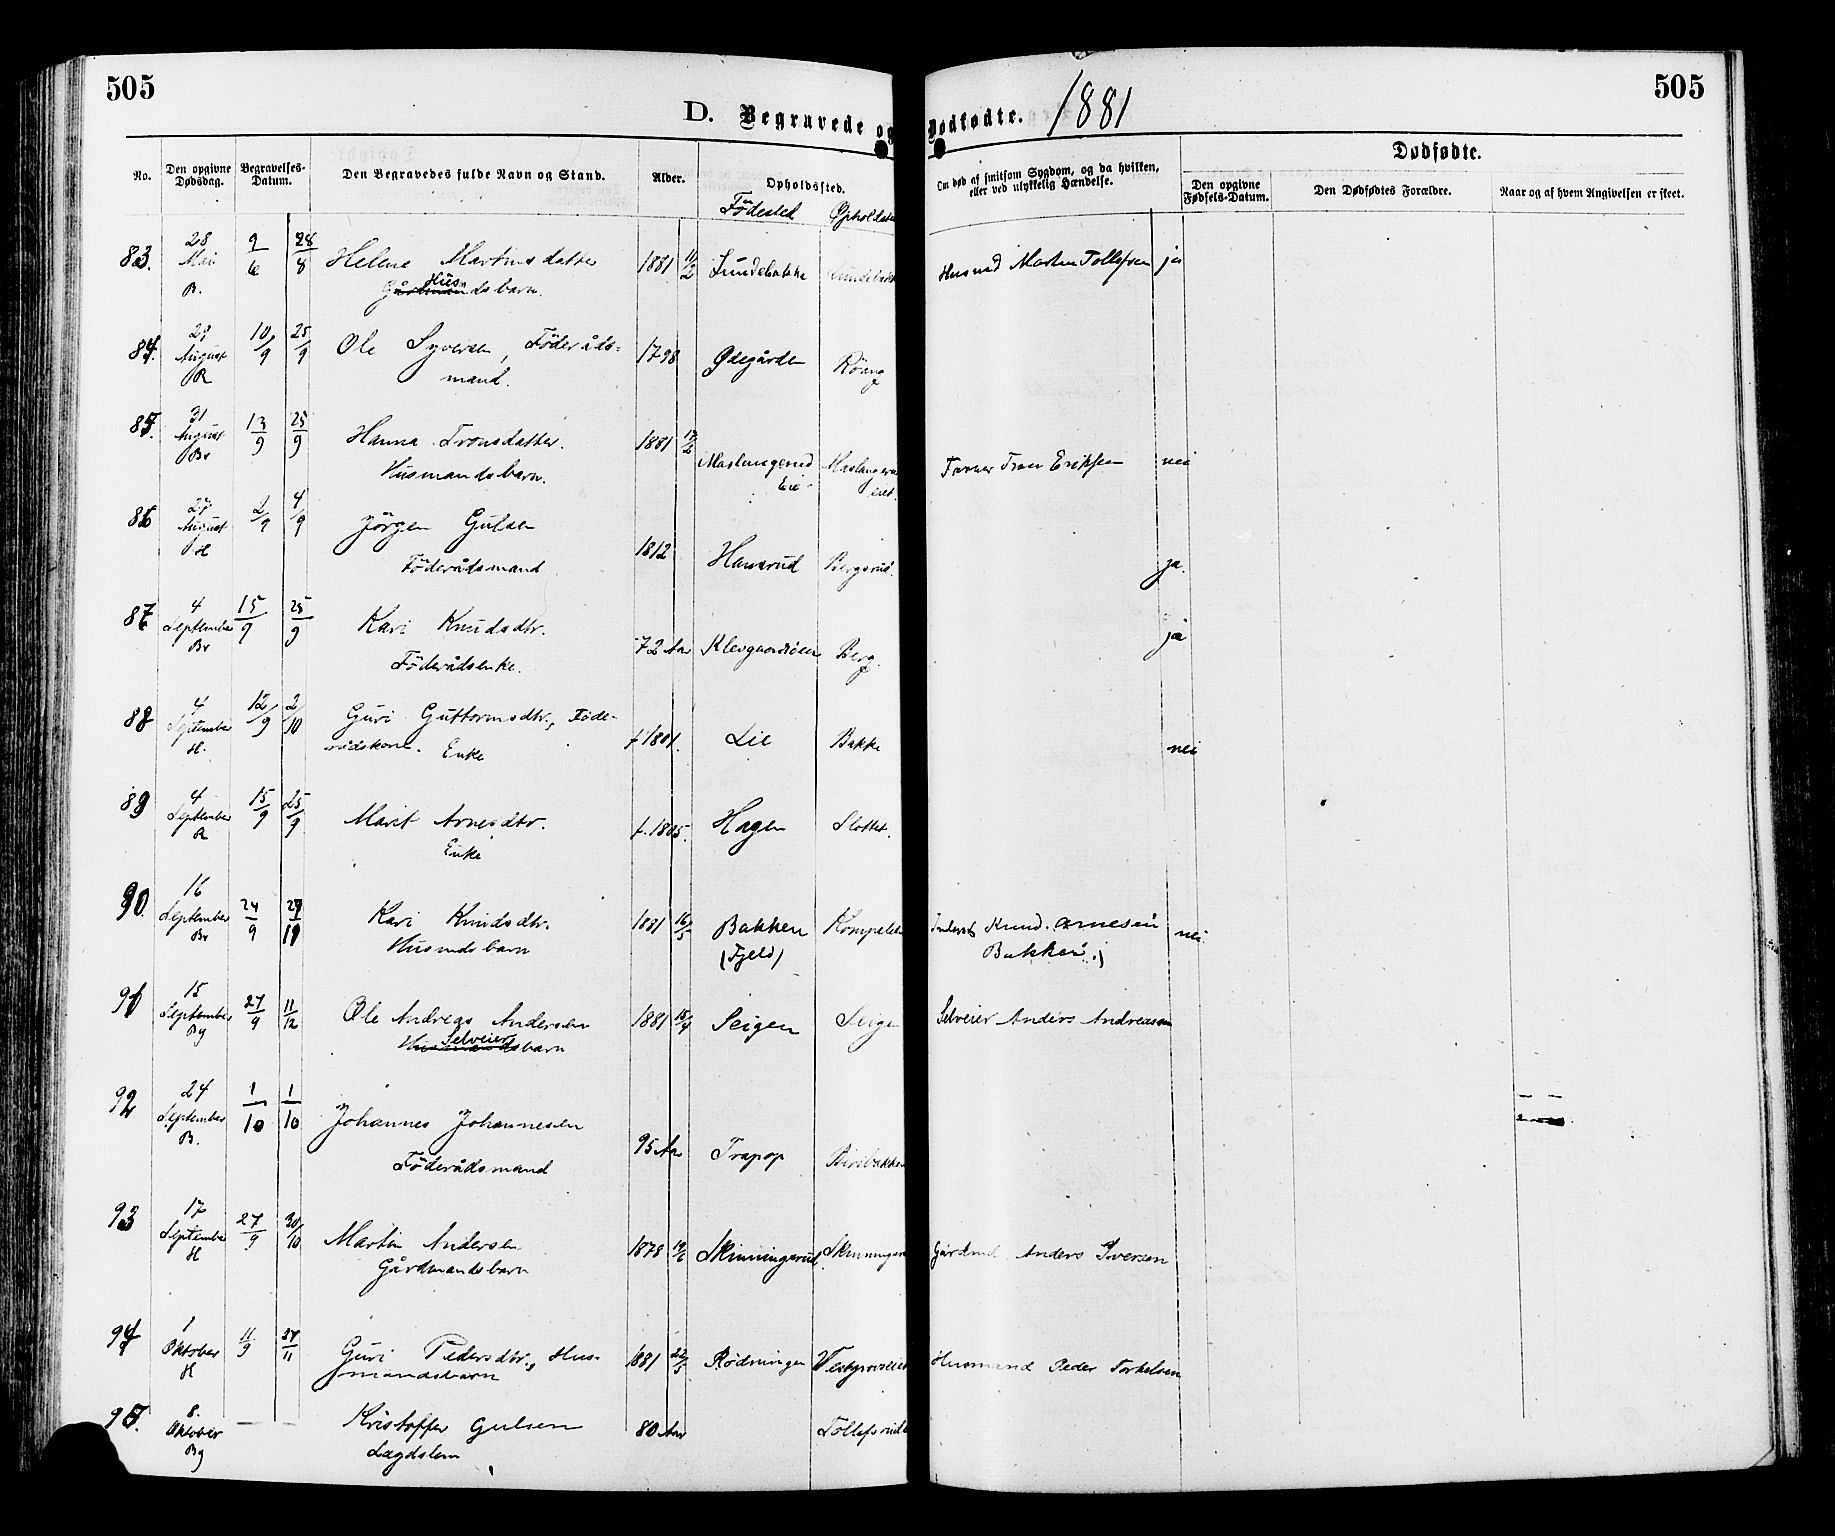 505
D. Begravede og Dødfødte. 1881
505
No. Den opgivne Dødsdag. Begravelses-Datum. Den Begravedes fulde Navn og Stand. Alder. Opholdssted. Om død af smitsom Sygdom, og da hvilken, eller ved ulykkelig Hændelse. Dødfødte.
Födested Opholdsted
Den opgivne Fødsels-Datum. Den Dødfødtes Forældre. Naar og af hvem Angivelsen er skeet.
83. 28 Mai B. 9/6 28/8 Helene Martinsdatter 1881 11/2 Lundebakke Lundebakk Husmd Martin Tollefsen ja
Husmandsbarn.
84. 29 August R 10/9 25/9 Ole Syversen, Föderåds- 1798 Ødegården Röang
mand.
85. 31 August Br 13/9 25/9 Hanna Tronsdatter. 1881 Maslangerud Eie Maslangerud eiet. Tron Eriksen nei
Husmandsbarn.
86 27 August H 2/9 4/9 Jörgen Gulsen 1812 Hansrud Bergsrud. ja.
Föderådsmand
87. 4 September Br 15/9 25/9 Kari Knudsdtr. 72 Aar Klevgaardseien Berg. ja
Föderådsenke.
88 4 September H. 12/9 2/10 Guri Guttormsdtr., Föde- f. 1801. Lie Bakke nei
rådskone. Enke
89 4 September R 15/9 25/9 Marit Arnesdtr. f. 1805. Hagen Slottet.
Enke
90. 16 September Br 24/9 Kari Knudsdtr. 1881 16/5 Bakken Inderst Knud Arnesen nei
Husmdsbarn (Fjeld) Bakken.)
91 15 September By 27/9 11/12 Ole Andreas Andersen 1881 18/4 Seigen Seigen Selveier Anders Andreasen
Selveier
Husmandsbarn
92 24 September B. 1/10 1/10 Johannes Johannesen 95 Aar Trapop Biribakken
Föderådsmand
93 17 September H 27/9 30/10 Martin Andersen 1878 Skinningsrud Skinningsru Gårdmd Anders Iversen
Gårdmandsbarn
94 1 Oktober H 11/9 27/11 Guri Pedersdtr., Hus- 1881 22/5 Rødningen Husmand Peder Torkelsen
mandsbarn
95. 8. Oktober By — — Kristoffer Gulsen 80 Aar Tollefsrud
Lægdslem